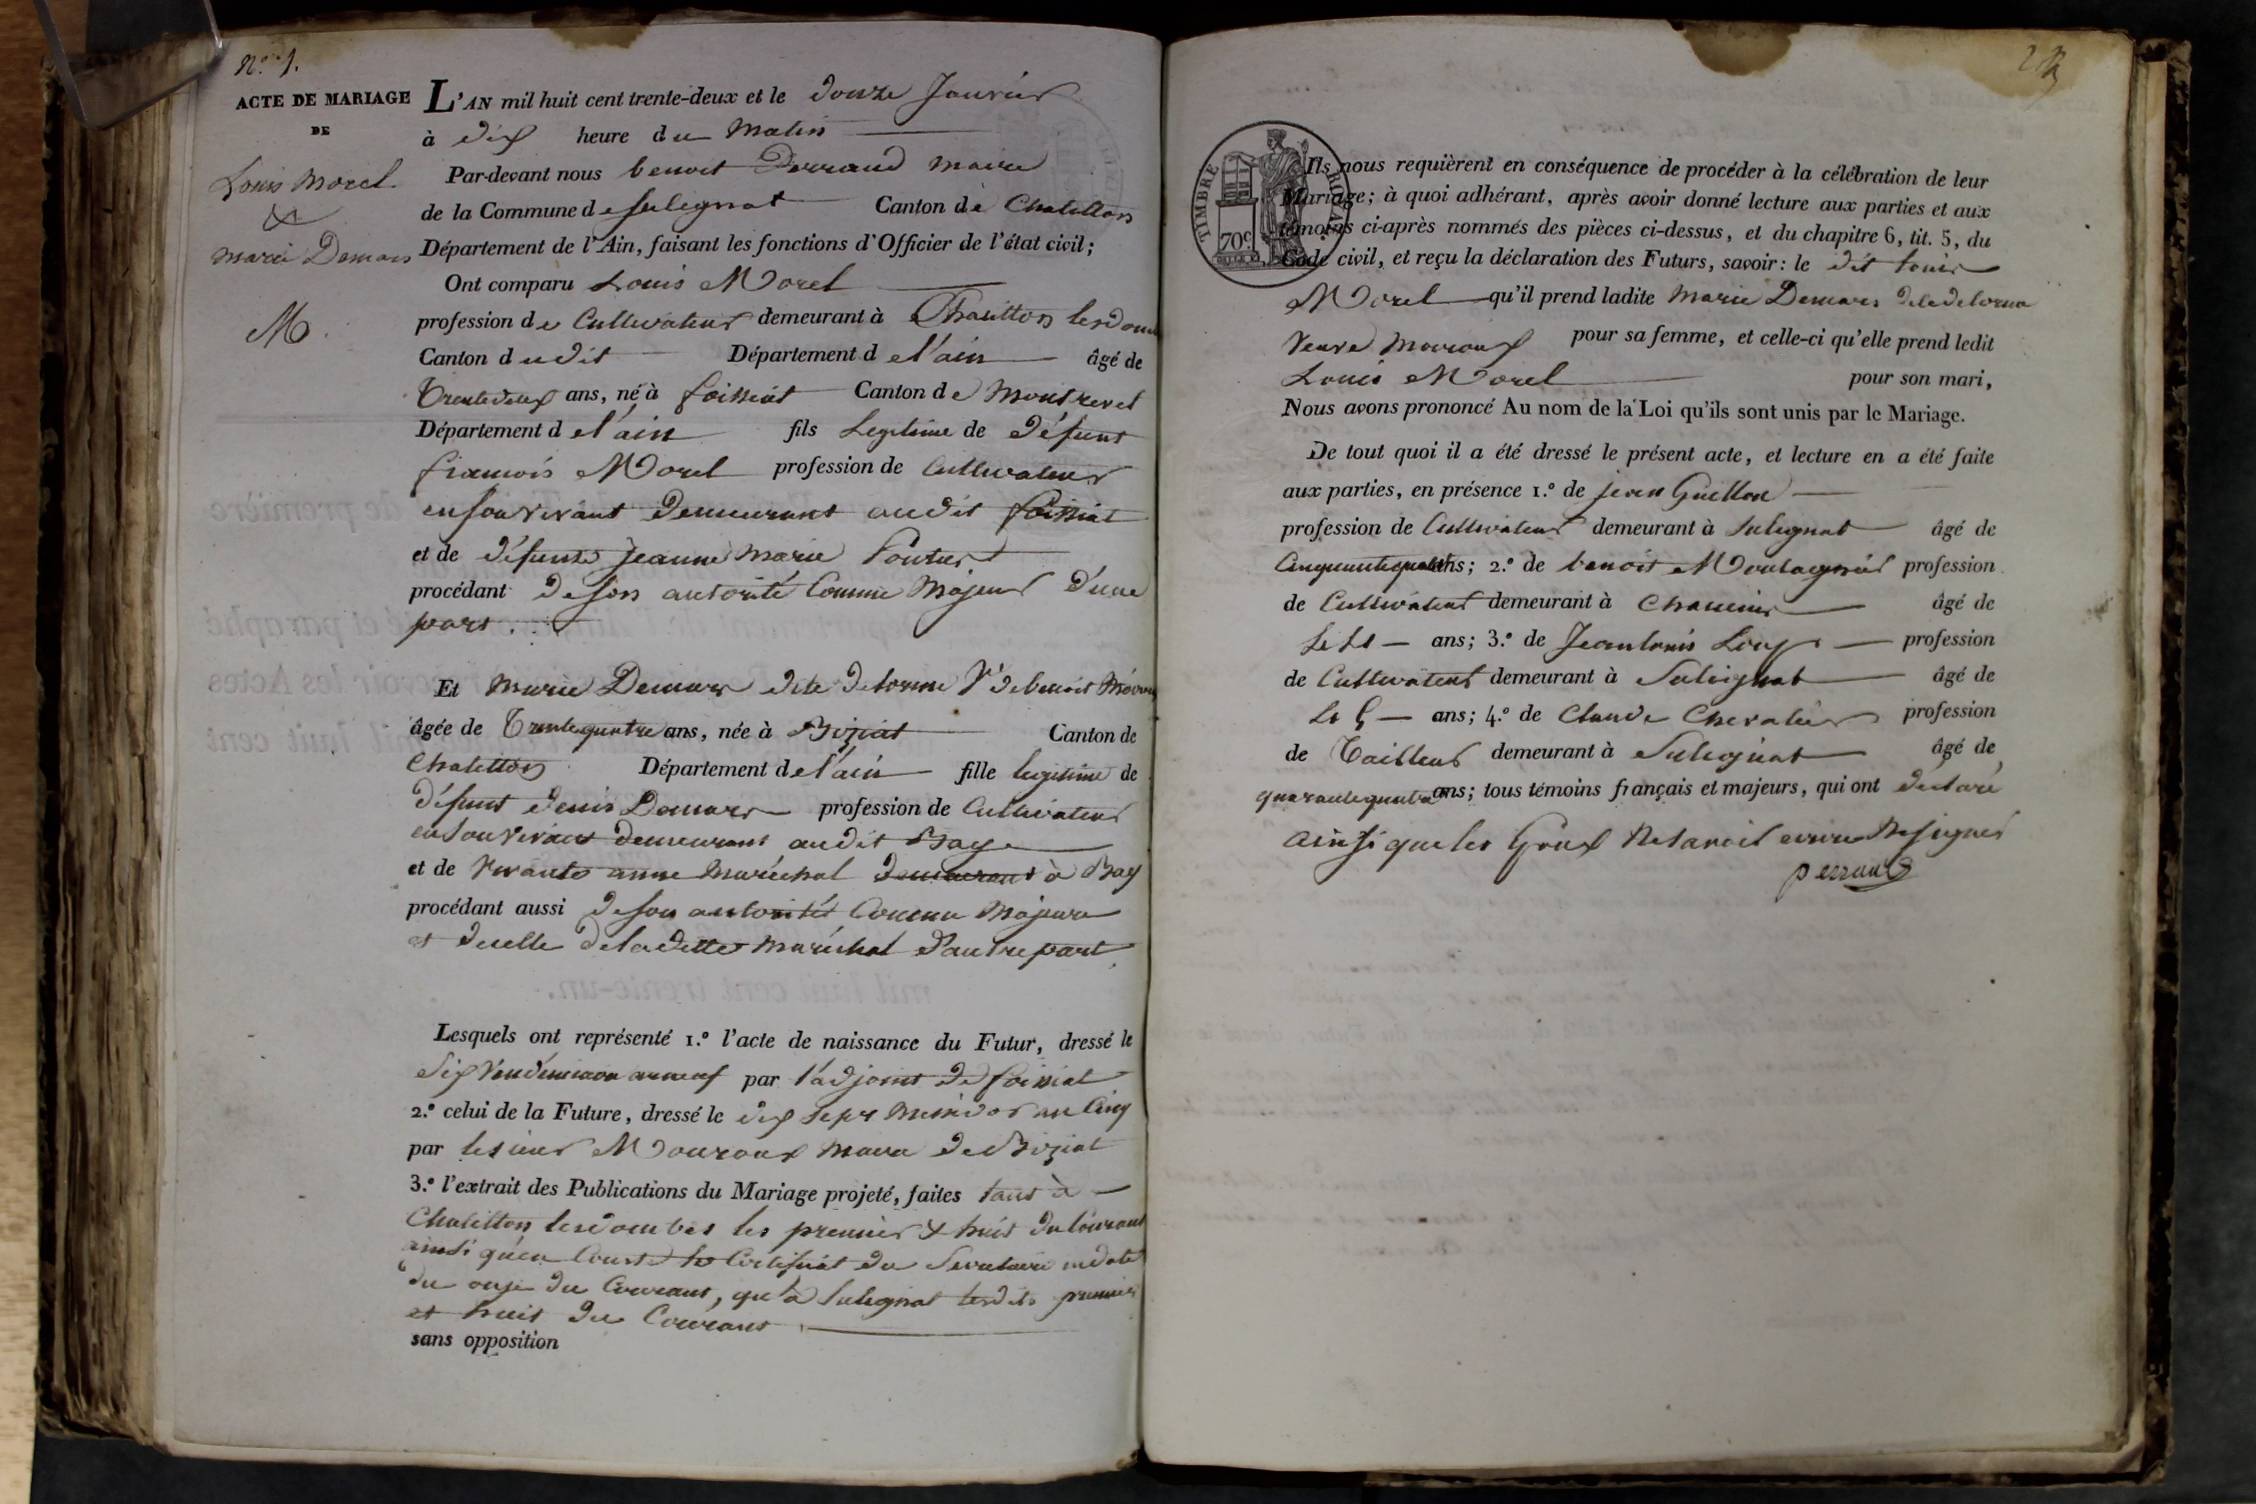 N.° 1.
ACTE DE MARIAGE
DE
Louis Morel
&
Marie Demars
M.
L'AN mil huit cent trente-deux et le douze Janvier
à dix heure du Matin
Par-devant nous benoit Perraud maire
de la Commune de Sulignat Canton de Chatillon
Département de l'Ain, faisant les fonctions d'Officier de l'état civil;
Ont comparu Louis Morel
profession de Cultivateur demeurant à Chatillon lesdombes
Canton dudit Département de l'ain âgé de
Trentedeux ans, né à foissiat Canton de Montrevel
Département de l'ain fils Legitime de défunt
francois Morel profession de Cultivateur
ensonvivant demeurant audit foissiat
et de défunte Jeanne Marie
procédant deson autorité Comme Majeur d'une
part.
Et Marie Demars dite delorme Vᵉ debenoit
âgée de Trentequatre ans, née à Biziat Canton de
Chatillon Département de l'ain fille legitime de
défunt denis Demars profession de Cultivateur
ensonvivant demeurant audit Bay
et de vivante anne Maréchal demeurant à Bay
procédant aussi deson autorité Comme Majeure
et decelle deladitte Maréchal d'autrepart
Lesquels ont représenté 1.° l'acte de naissance du Futur, dressé le
Six Vendemiaire anneuf par l'adjoint de foissiat
2.° celui de la Future, dressé le dix sept Messidor an Cinq
par lesieur Mouroux Maire de Biziat
3.° l'extrait des Publications du Mariage projeté, faites tant à
Chatillon lesdombes les premier & huit du Courant
ainsi qu'en Conste le Certificat du Secretaire endate
du onze du Courant, qu'à Sulignat lesdits premier
et huit du Courant
sans opposition
TIMBRE ROYAL
70 c.
Ils nous requièrent en conséquence de procéder à la célébration de leur
Mariage; à quoi adhérant, après avoir donné lecture aux parties et aux
témoins ci-après nommés des pièces ci-dessus, et du chapitre 6, tit. 5, du
Code civil, et reçu la déclaration des Futurs, savoir: le dit Louis
Morel qu'il prend ladite Marie Demars ditedelorme
Veuve Mouroux pour sa femme, et celle-ci qu'elle prend ledit
Louis Morel pour son mari,
Nous avons prononcé Au nom de la Loi qu'ils sont unis par le Mariage.
De tout quoi il a été dressé le présent acte, et lecture en a été faite
aux parties, en présence 1.° de jean Guillon
profession de Cultivateur demeurant à Sulignat âgé de
Cinquantequatre ans; 2.° de benoit Montagnier profession
de Cultivateur demeurant à âgé de
ans; 3.° de Jeanlouis profession
de Cultivateur demeurant à Sulignat âgé de
ans; 4.° de Claude Chevalier profession
de Tailleur demeurant à Sulignat âgé de
quarantequatre ans; tous témoins français et majeurs, qui ont déclaré
ainsi queles Epoux Nesavoir ecrire Nesigner
perraud